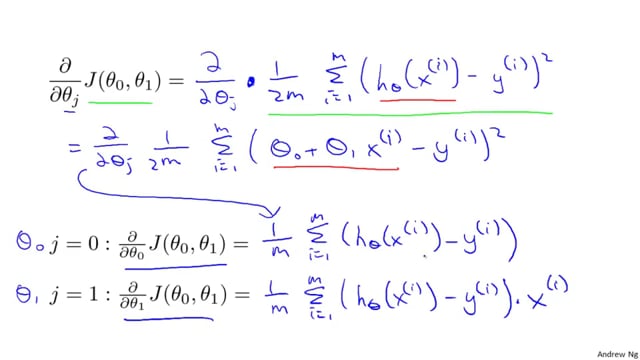 ∂/∂θⱼ J(θ₀, θ₁) = ∂/∂θⱼ · 1/2m Σᵢ₌₁ᵐ (hθ(x⁽ⁱ⁾) − y⁽ⁱ⁾)²
= ∂/∂θⱼ 1/2m Σᵢ₌₁ᵐ (θ₀ + θ₁ x⁽ⁱ⁾ − y⁽ⁱ⁾)²
θ₀ j = 0 : ∂/∂θ₀ J(θ₀, θ₁) = 1/m Σᵢ₌₁ᵐ (hθ(x⁽ⁱ⁾) − y⁽ⁱ⁾)
θ₁ j = 1 : ∂/∂θ₁ J(θ₀, θ₁) = 1/m Σᵢ₌₁ᵐ (hθ(x⁽ⁱ⁾) − y⁽ⁱ⁾) · x⁽ⁱ⁾
Andrew Ng